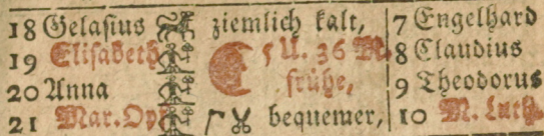 18 Gelasius ziemlich kalt, 7 Engelhard
19 Elisabeth 5 U. 36 M. 8 Claudius
20 Anna frühe, 9 Theodorus
21 Mar. Opf bequemer, 10 M. Luth.